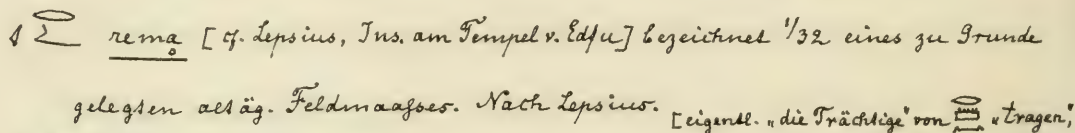 rema [cf. Lepsius, Ins. am Tempel v. Edfu] bezeichnet 1/32 eines zu Grunde
gelegten altäg. Feldmaaßes. Nach Lepsius. [eigentl. „die Trächtige“ von „tragen,